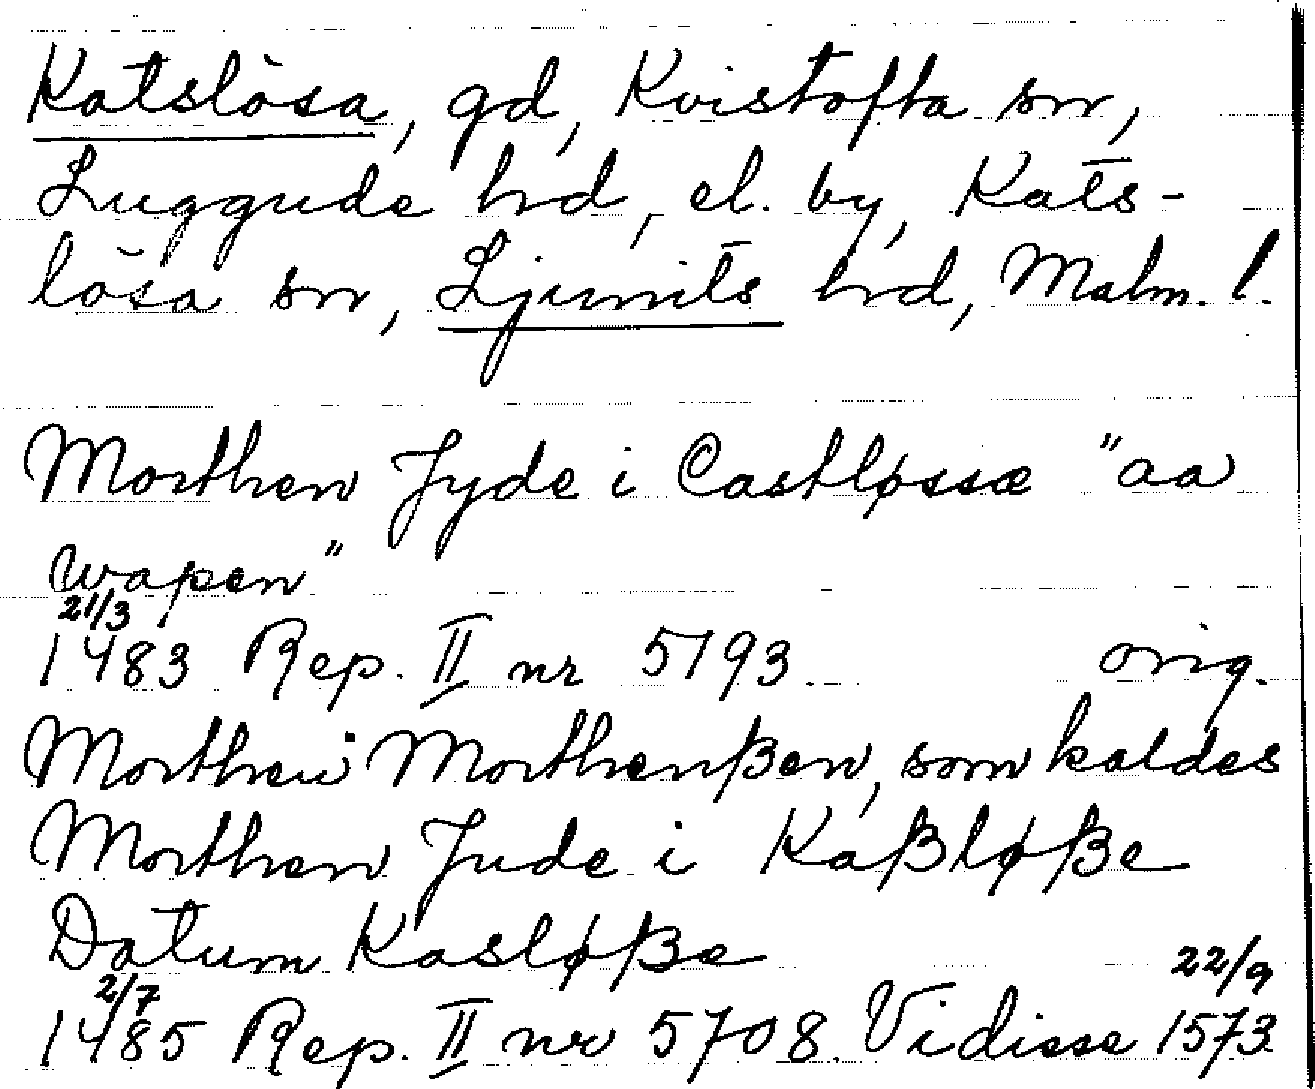 Katslösa, gd, Kvistofta sn,
Luggude hrd, el. by, Kats-
lösa sn, Ljunits hrd, Malm. l.
Morthen Jyde i Castløssæ "aa
wapen"
21/3
1483 Rep. II nr 5193 orig.
Morthen Morthenßen, som kaldes
Morthen Jude i Kaßløße
Datum Kasløße
2/7 22/9
1485 Rep. II nr 5708. Vidisse 1573.